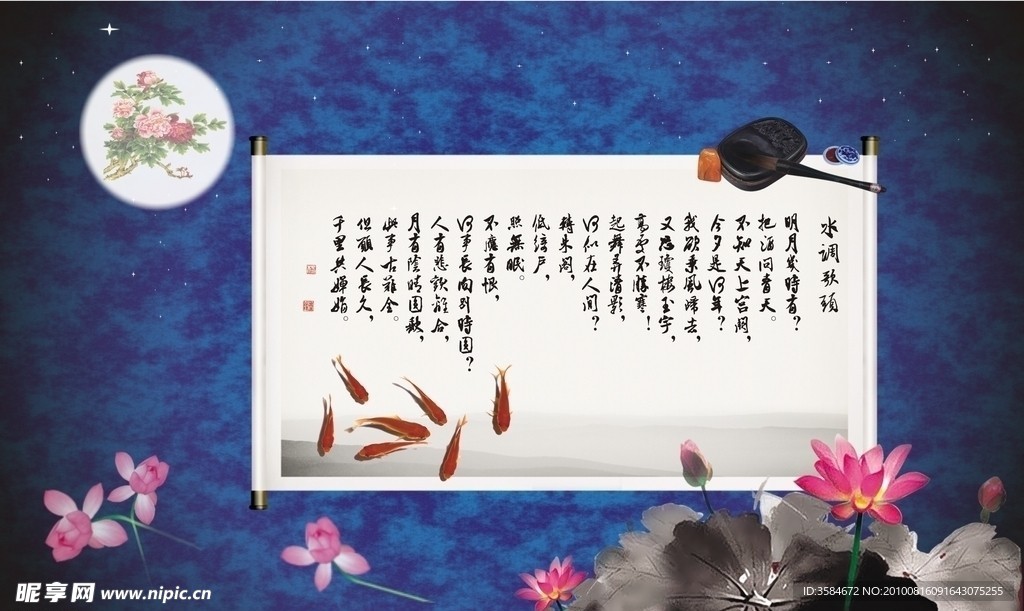 水調歌頭
明月幾時有？
把酒問青天。
不知天上宮闕，
今夕是何年？
我欲乘風歸去，
又恐瓊樓玉宇，
高處不勝寒！
起舞弄清影，
何似在人間？
轉朱閣，
低綺戶，
照無眠。
不應有恨，
何事長向別時圓？
人有悲歡離合，
月有陰晴圓缺，
此事古難全。
但願人長久，
千里共嬋娟。
昵享网 www.nipic.cn
ID:3584672 NO:20100816091643075255